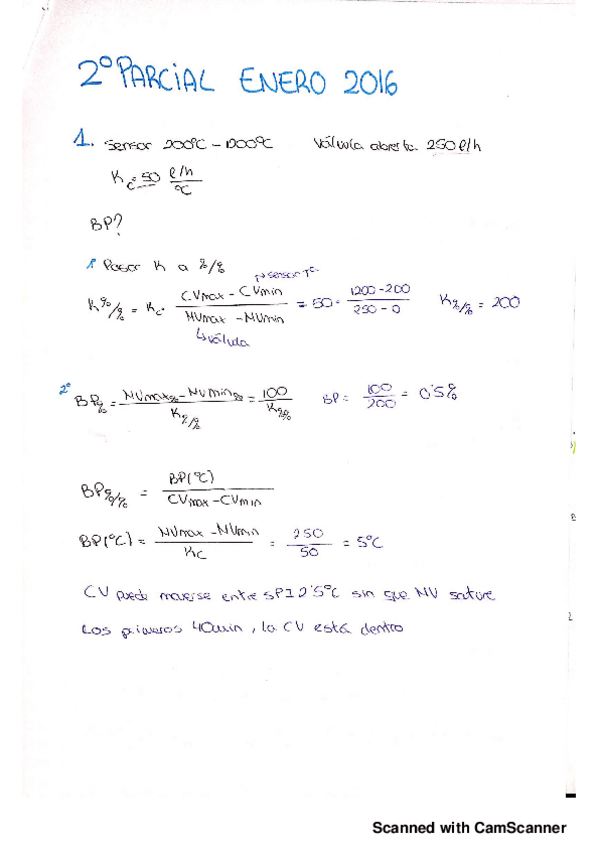 2º PARCIAL ENERO 2016
1. Sensor 200ºC - 1200ºC Válvula abierta 250 l/h
Kc = 50 l/h / ºC
BP?
1º Pasar K a %/%
↱ sensor Tº
K%/% = Kc · (CVmax - CVmin) / (MVmax - MVmin) = 50 · (1200 - 200) / (250 - 0) K%/% = 200
↳ válvula
2º BP% = (MVmax% - MVmin%) / K%/% = 100 / K%/% BP = 100 / 200 = 0'5%
BP%/% = BP(ºC) / (CVmax - CVmin)
BP(ºC) = (MVmax - MVmin) / KC = 250 / 50 = 5ºC
CV puede moverse entre SP±2'5ºC sin que MV sature
Los primeros 40min, la CV está dentro
Scanned with CamScanner